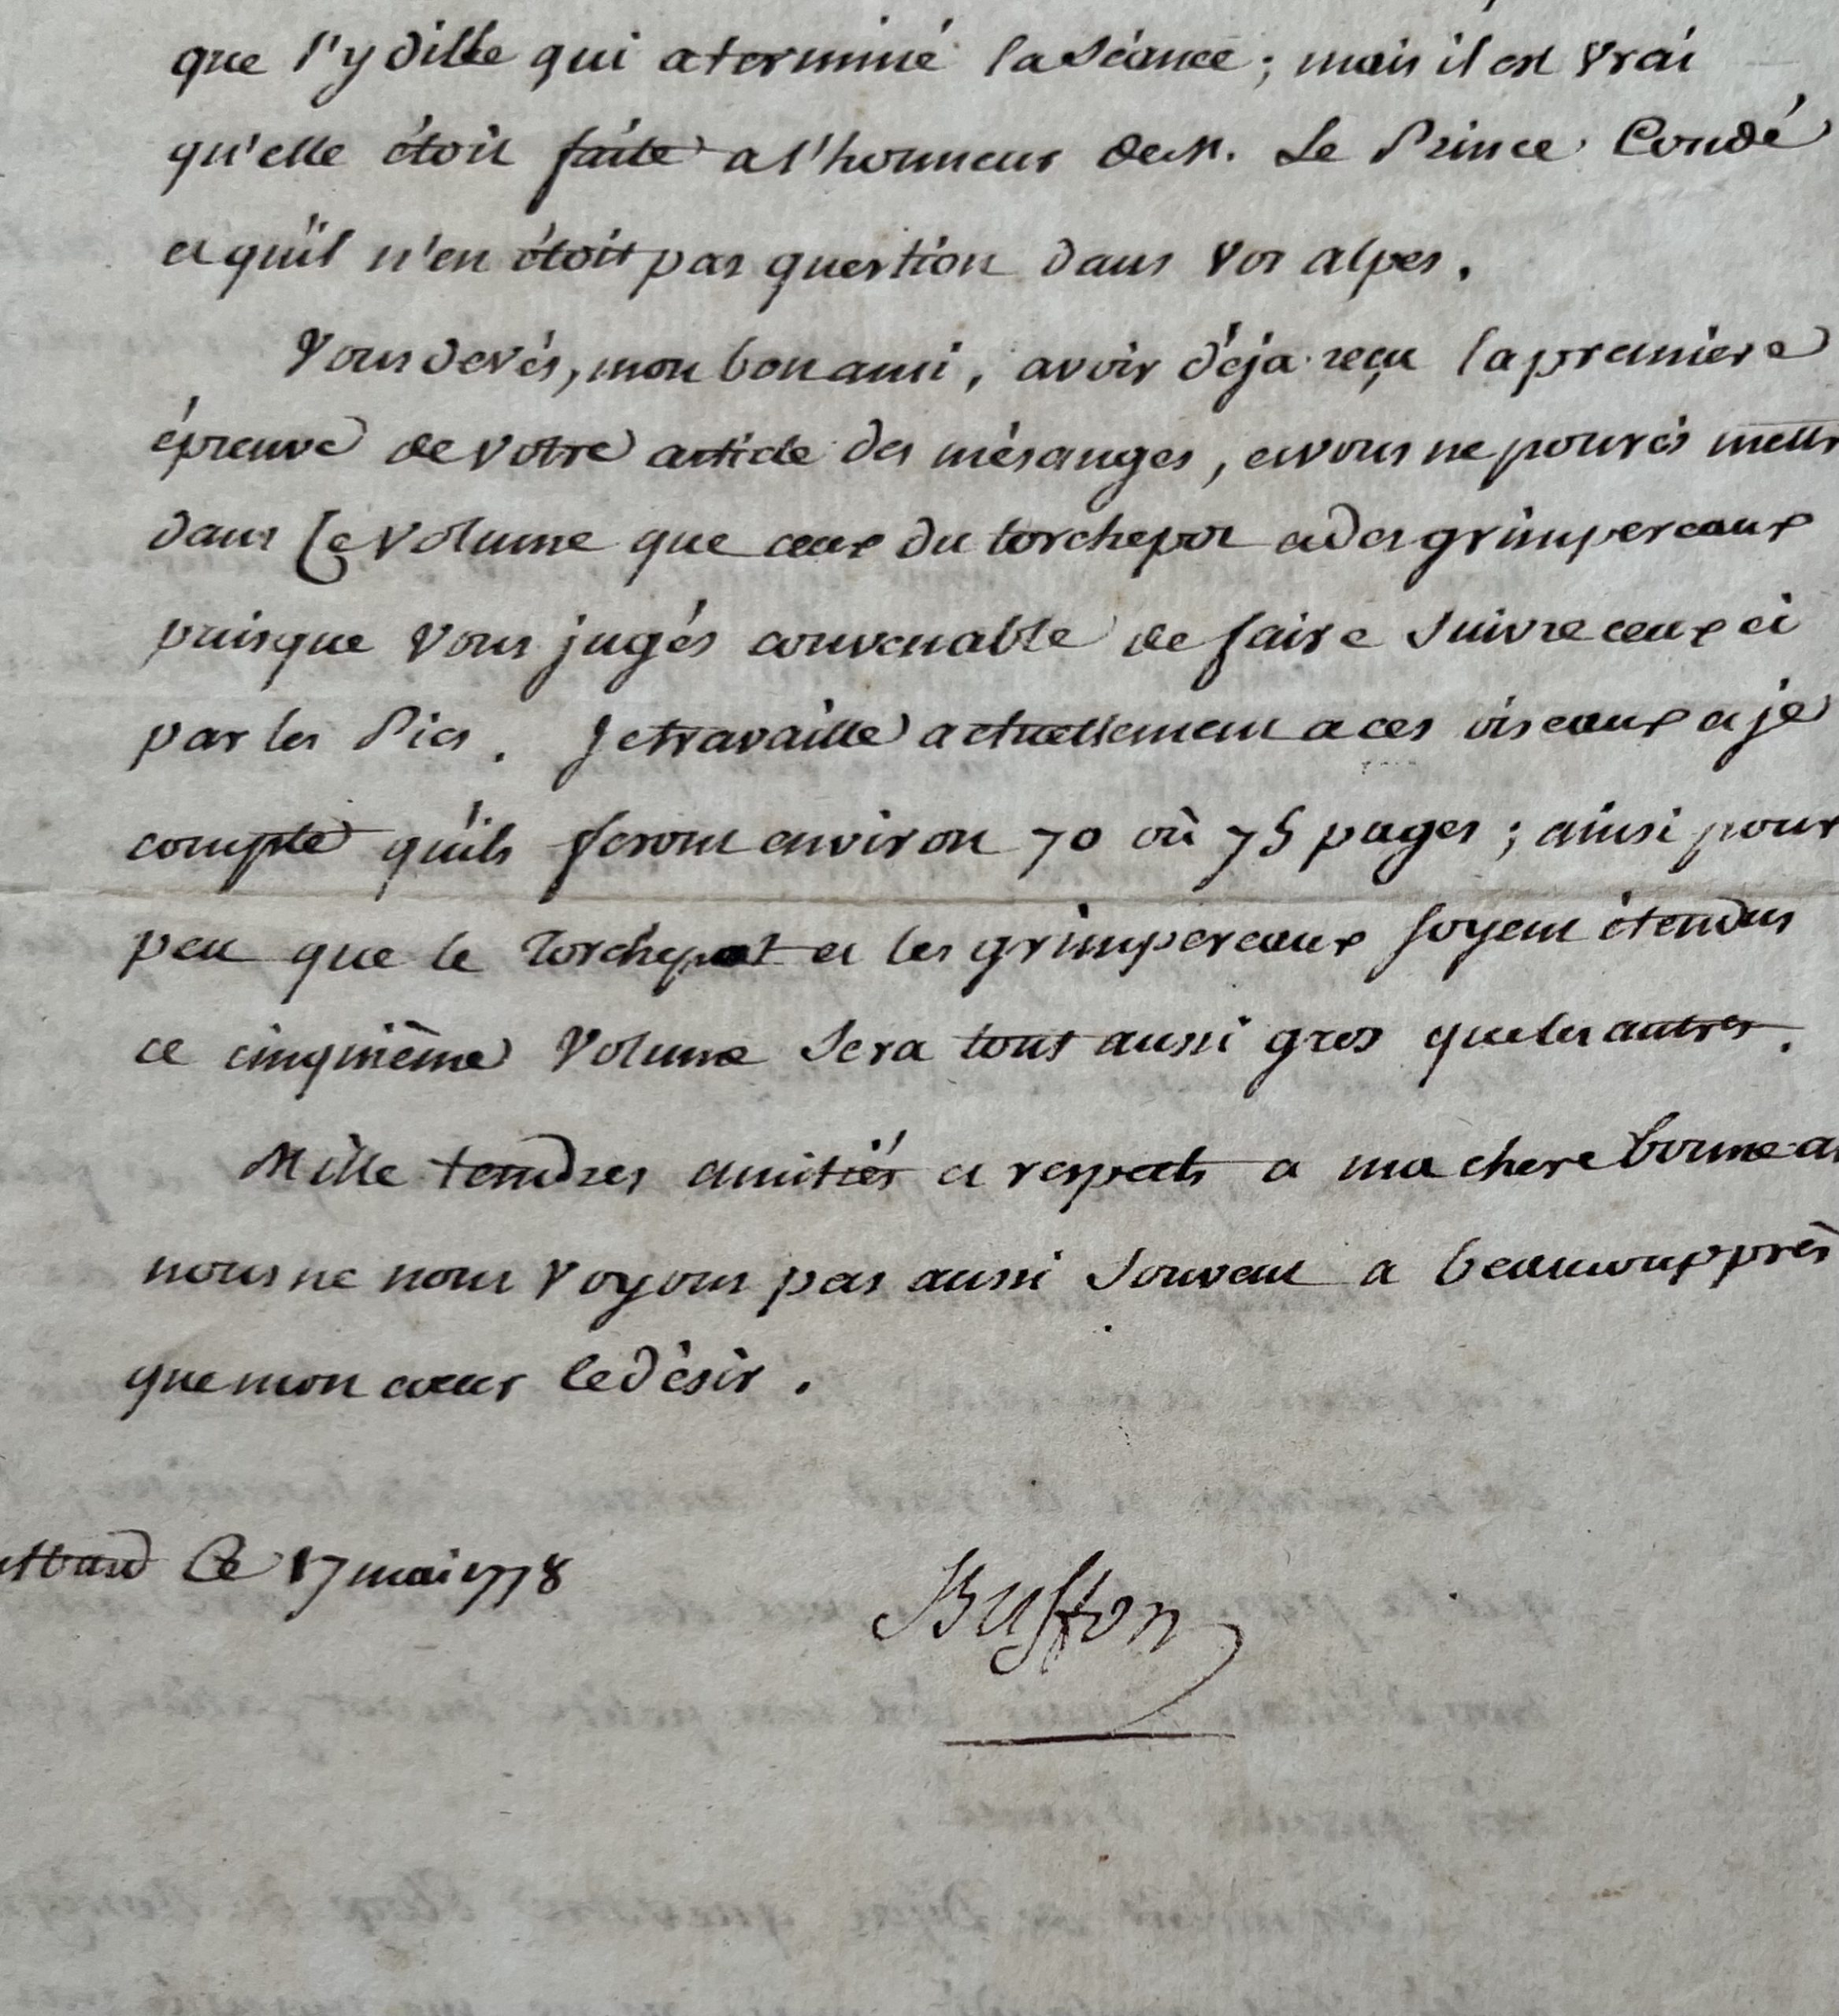 que l'ydille qui a terminé la séance ; mais il est vrai
qu'elle étoit faite a l'honneur de M. Le Prince Condé
et qu'il n'en étoit pas question dans vos alpes.
Vous devés, mon bon ami, avoir déja reçu la premiere
épreuve de votre article des mésanges, et vous ne pourés mettr
dans ce volume que ceux du torchepot et des grimpereaux
puisque vous jugés convenable de faire suivre ceux ci
par les Pics. Je travaille actuellement a ces oiseaux et je
compte qu'ils feront environ 70 où 75 pages ; ainsi pour
peu que le Torchepot et les grimpereaux soyent étendus
ce cinquième volume sera tout aussi gros que les autres.
Mille tendres amitiés et respects a ma chere bonne a
nous ne nous voyons pas aussi souvent a beaucoup près
que mon cœur le désir.
tbard Ce 17 mai 1778
Buffon